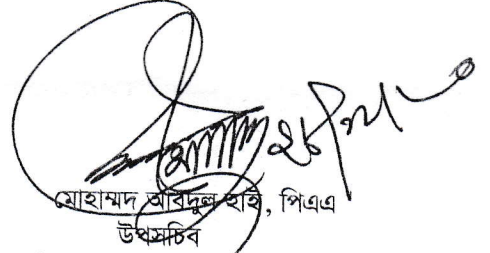 মোহাম্মদ আবদুল হাই, পিএএ
উপসচিব